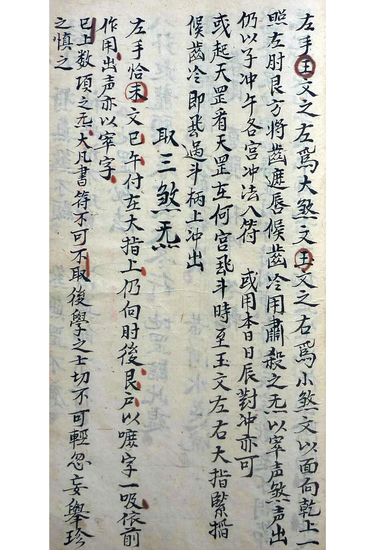 左手玉文之左爲大煞文玉文之右爲小煞文以面向乾上一
照左肘艮方將齒遮唇候齒冷用肅殺之炁以宰声煞声出
仍以子冲午各宮冲法入符 或用本日日辰對冲亦可
或起天罡看天罡在何宮飛斗時至玉文左右大指緊掐
候齒冷即飛過斗柄上冲出
取三煞炁
左手恰未文巳午付左大指上仍向肘後艮户以嚒字一吸依前
作用出声亦以宰字
已上数項之炁大凡書符不可不取後學之士切不可輕忽妄舉珍
之慎之